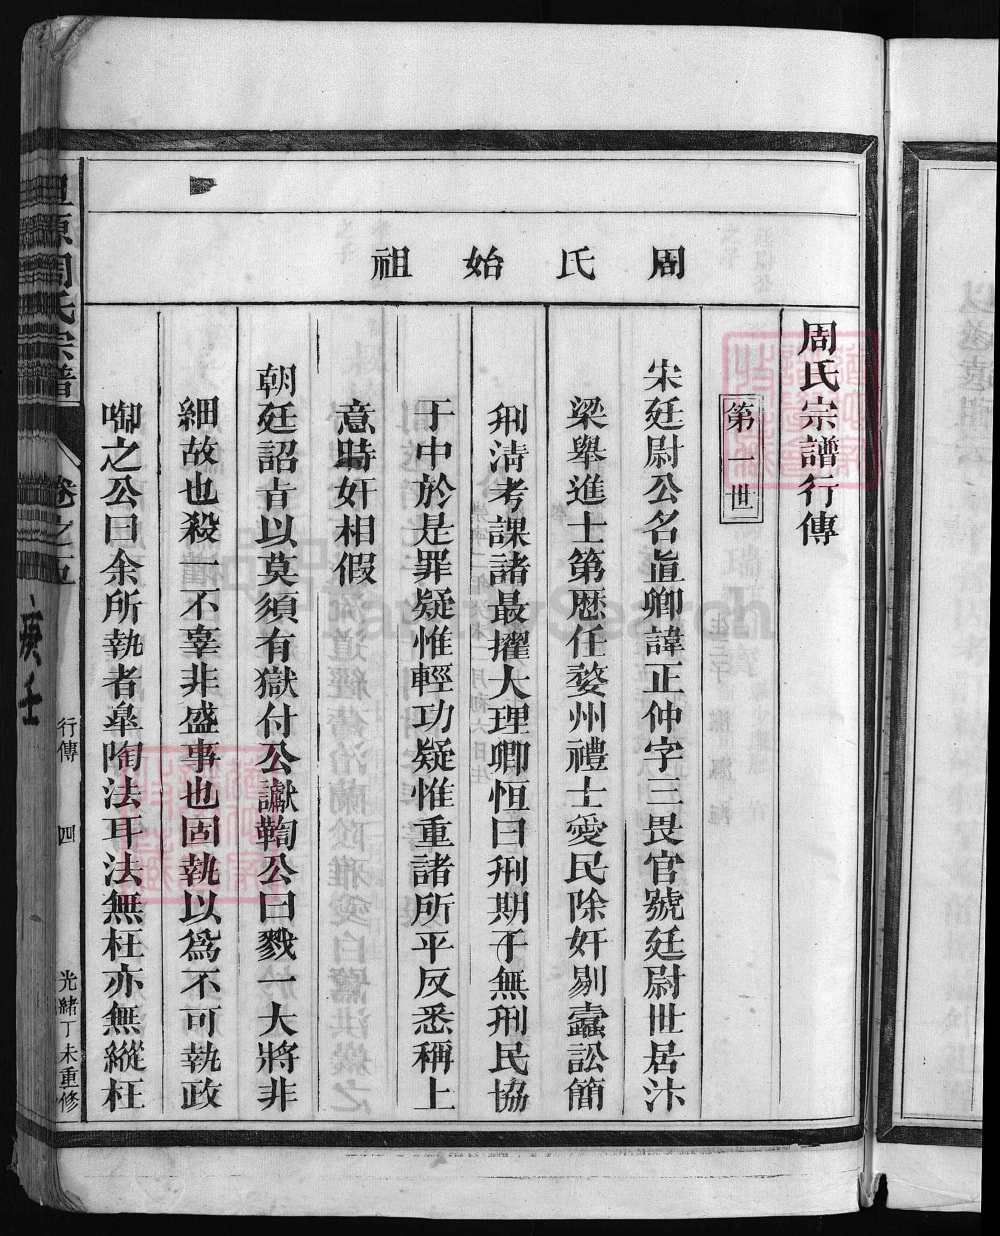 周氏始祖
周氏宗譜行傳
第一世
宋廷尉公名眞卿諱正仲字三畏官號廷尉世居汴
梁舉進士第歷任婺州禮士愛民除奸剔蠹訟簡
刑淸考課諸最擢大理卿恒曰刑期于無刑民協
于中於是罪疑惟輕功疑惟重諸所平反悉稱上
意時奸相假
朝廷詔旨以莫須有獄付公讞鞫公曰戮一大將非
細故也殺一不辜非盛事也固執以爲不可執政
啣之公曰余所執者臯陶法耳法無枉亦無縱枉
源周氏宗譜
卷之五
庚壬
行傳 四
光緒丁未重修
FamilySearch